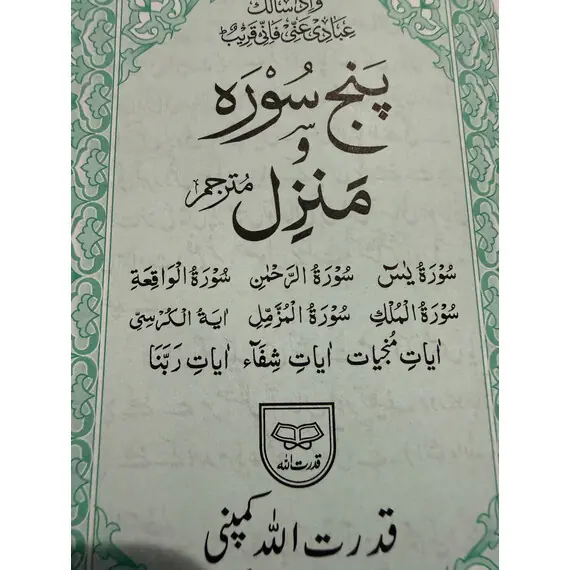 وَإِذَا سَأَلَكَ
عِبَادِىْ عَنِّىْ فَاِنِّىْ قَرِيْبٌ ط
پَنج سُوْرَه
و
مَنزِل مُترجم
سُوْرَةُ يٰسٓ سُوْرَةُ الرَّحْمٰنِ سُوْرَةُ الْوَاقِعَةِ
سُوْرَةُ الْمُلْكِ سُوْرَةُ الْمُزَّمِّل اٰيَةُ الْكُرْسِىّ
اٰيَاتِ مُنْجِيَات اٰيَاتِ شِفَآء اٰيَاتِ رَبَّنَا
قدرت اللہ
قدرت اللہ کمپنی